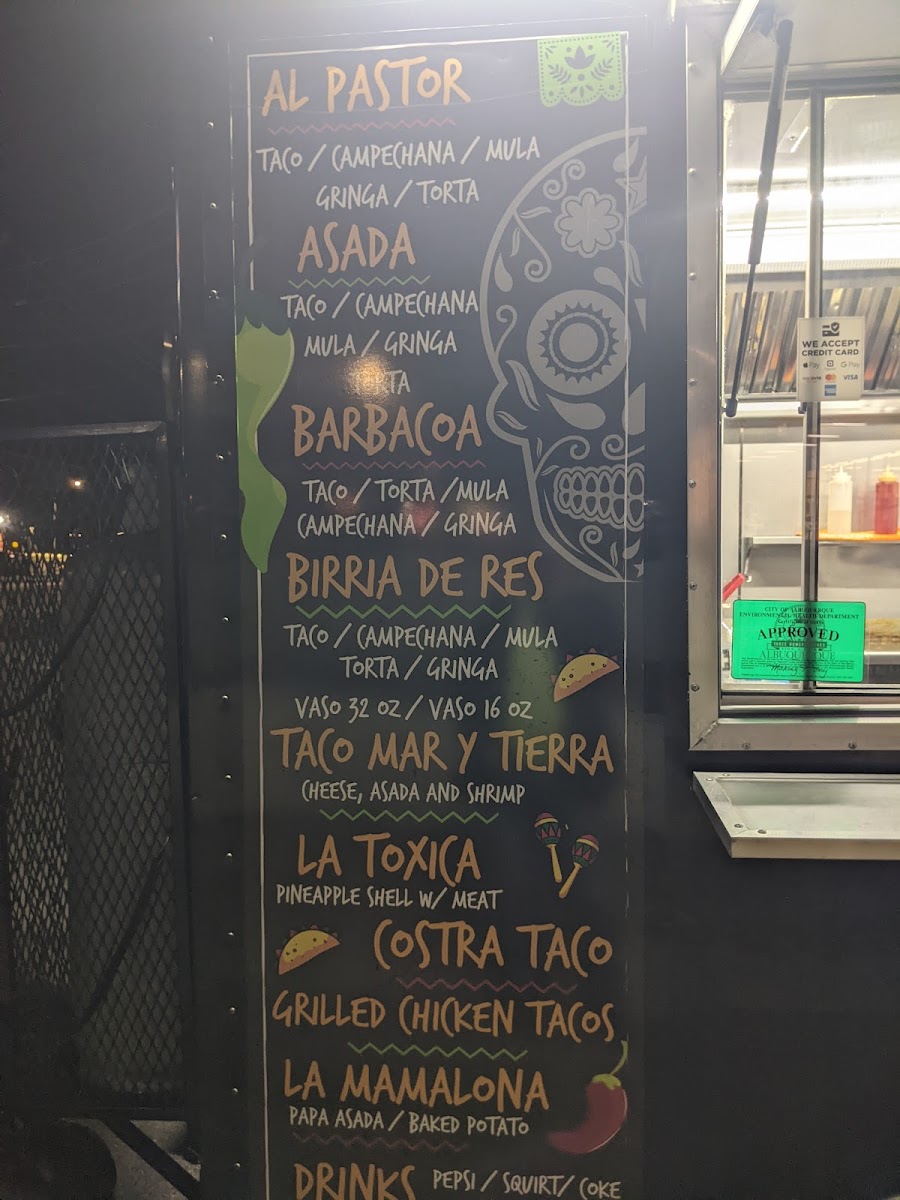 AL PASTOR
TACO / CAMPECHANA / MULA
GRINGA / TORTA
ASADA
TACO / CAMPECHANA
MULA / GRINGA
TORTA
BARBACOA
TACO / TORTA / MULA
CAMPECHANA / GRINGA
BIRRIA DE RES
TACO / CAMPECHANA / MULA
TORTA / GRINGA
VASO 32 OZ / VASO 16 OZ
TACO MAR Y TIERRA
CHEESE, ASADA AND SHRIMP
LA TOXICA
PINEAPPLE SHELL W/ MEAT
COSTRA TACO
GRILLED CHICKEN TACOS
LA MAMALONA
PAPA ASADA / BAKED POTATO
DRINKS PEPSI / SQUIRT / COKE
WE ACCEPT
CREDIT CARD
Pay G Pay
VISA
CITY OF ALBUQUERQUE
ENVIRONMENTAL HEALTH DEPARTMENT
APPROVED
ALBUQUERQUE